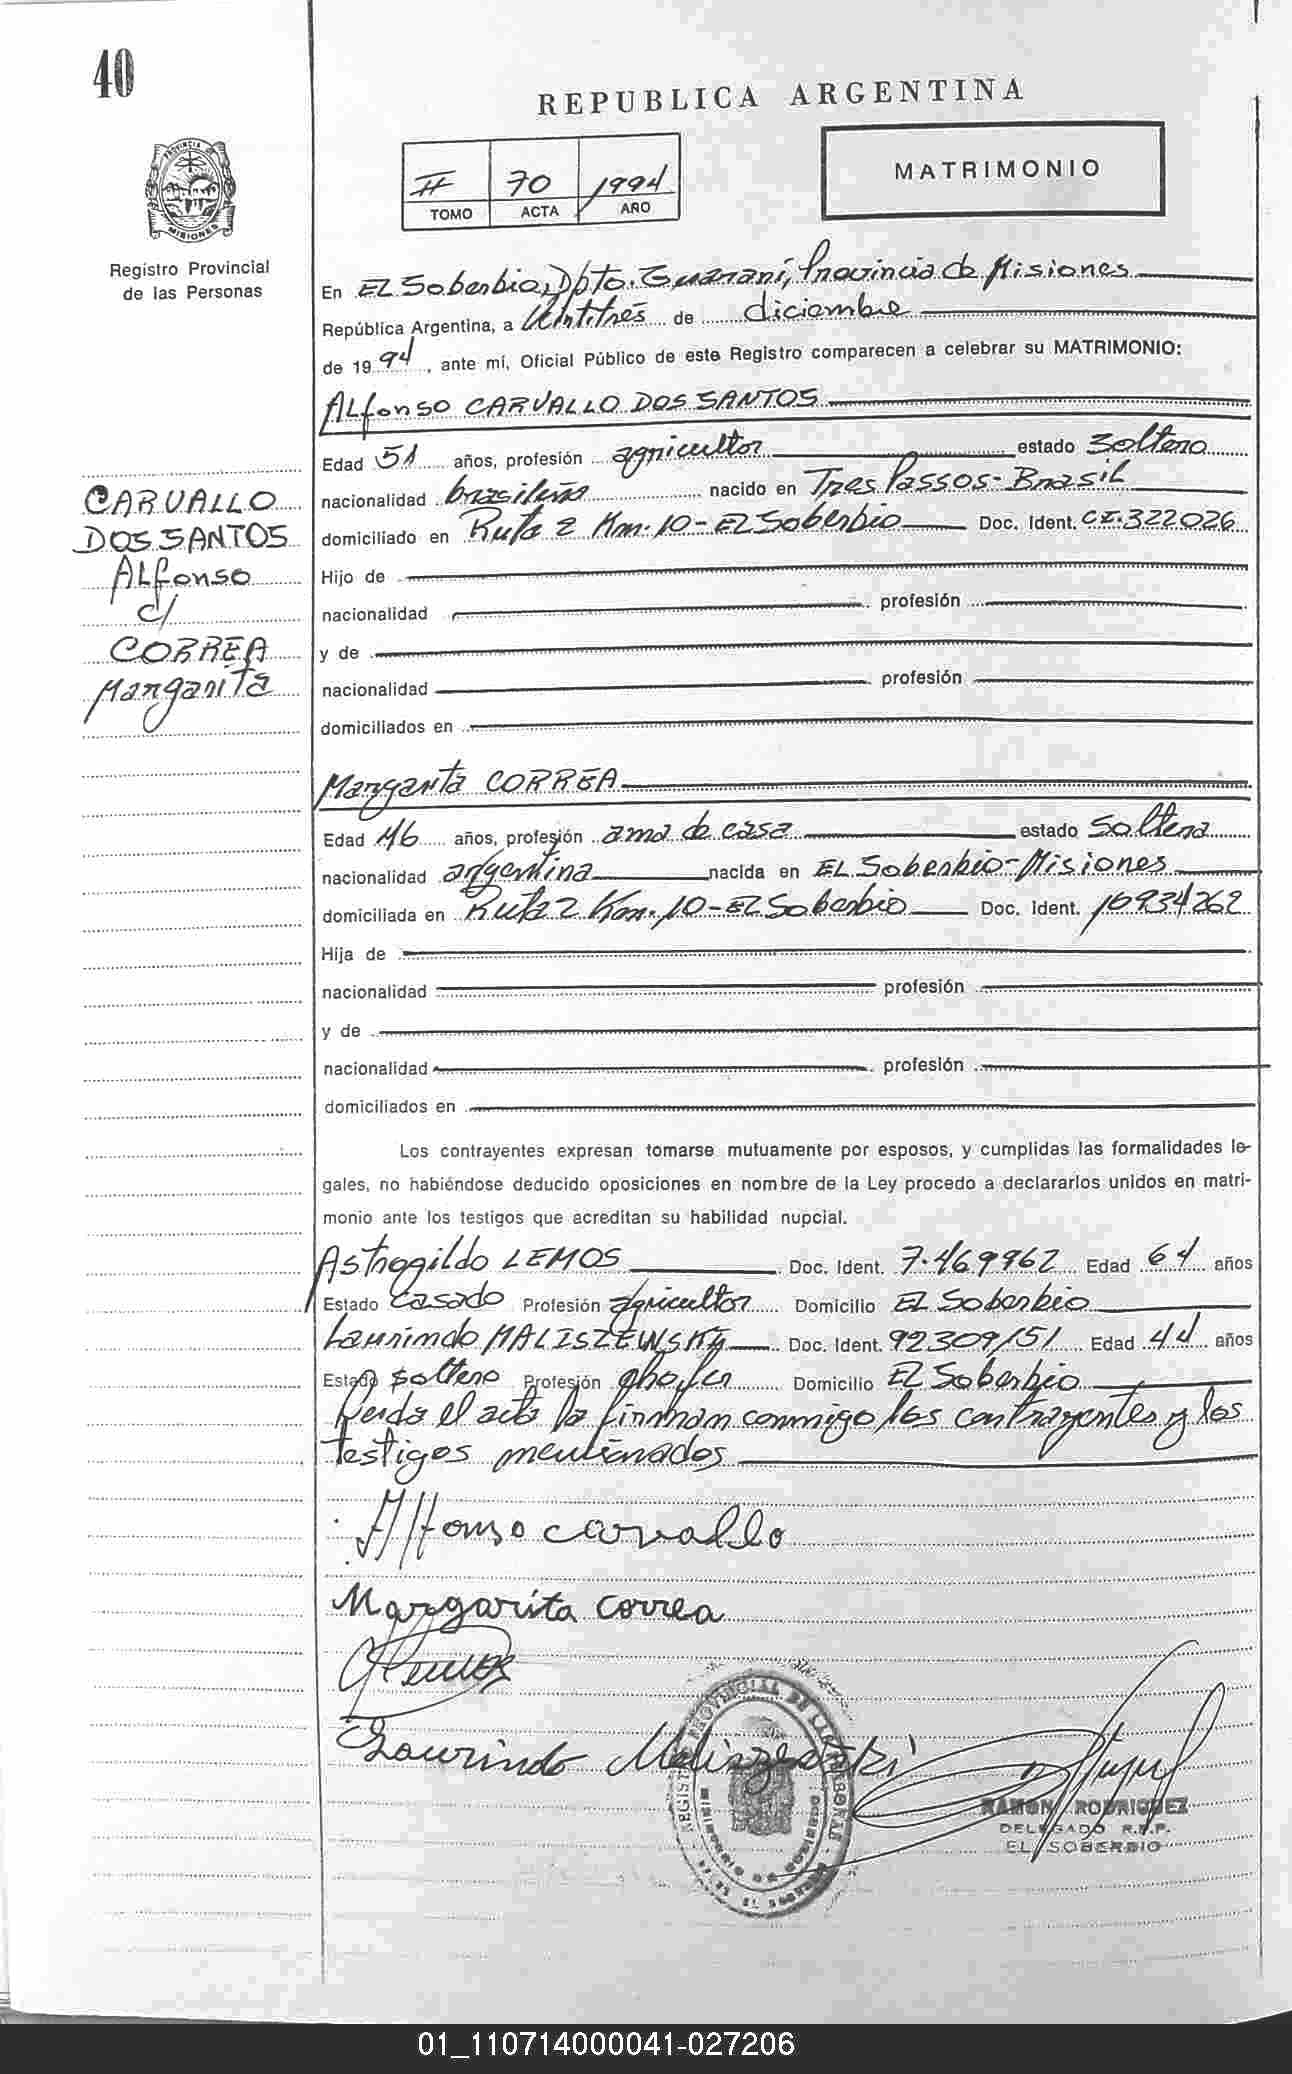 40
REPUBLICA ARGENTINA
PROVINCIA DE
MISIONES
Registro Provincial
de las Personas
II 70 1994
TOMO ACTA AÑO
MATRIMONIO
En EL Soberbio, Dpto. Guaraní, Provincia de Misiones
República Argentina, a Veintitrés de diciembre
de 1994, ante mí, Oficial Público de este Registro comparecen a celebrar su MATRIMONIO:
ALfonso CARVALLO DOS SANTOS
Edad 51 años, profesión agricultor estado Soltero
nacionalidad brasileño nacido en Tres Passos - Brasil
domiciliado en Ruta 2 Km. 10 - EL Soberbio Doc. Ident. CI. 322026
Hijo de
nacionalidad profesión
y de
nacionalidad profesión
domiciliados en
CARVALLO
DOS SANTOS
ALfonso
c/
CORREA
Margarita
Margarita CORREA
Edad 46 años, profesión ama de casa estado Soltera
nacionalidad argentina nacida en EL Soberbio - Misiones
domiciliada en Ruta 2 Km. 10 - EL Soberbio Doc. Ident. 16934262
Hija de
nacionalidad profesión
y de
nacionalidad profesión
domiciliados en
Los contrayentes expresan tomarse mutuamente por esposos, y cumplidas las formalidades le-
gales, no habiéndose deducido oposiciones en nombre de la Ley procedo a declararlos unidos en matri-
monio ante los testigos que acreditan su habilidad nupcial.
Astrogildo LEMOS Doc. Ident. 7.469962 Edad 64 años
Estado Casado Profesión agricultor Domicilio EL Soberbio
Laurindo MALISZEWSKI Doc. Ident. 92309151 Edad 44 años
Estado Soltero Profesión chofer Domicilio EL Soberbio
Leída el acta la firman conmigo los contrayentes y los
testigos mencionados
Alfonso carvallo
Margarita correa
Lemos
Laurindo Maliszewski
REGISTRO PROVINCIAL DE LAS PERSONAS
RAMON RODRIGUEZ
DELEGADO R.P.P.
EL SOBERBIO
01_110714000041-027206